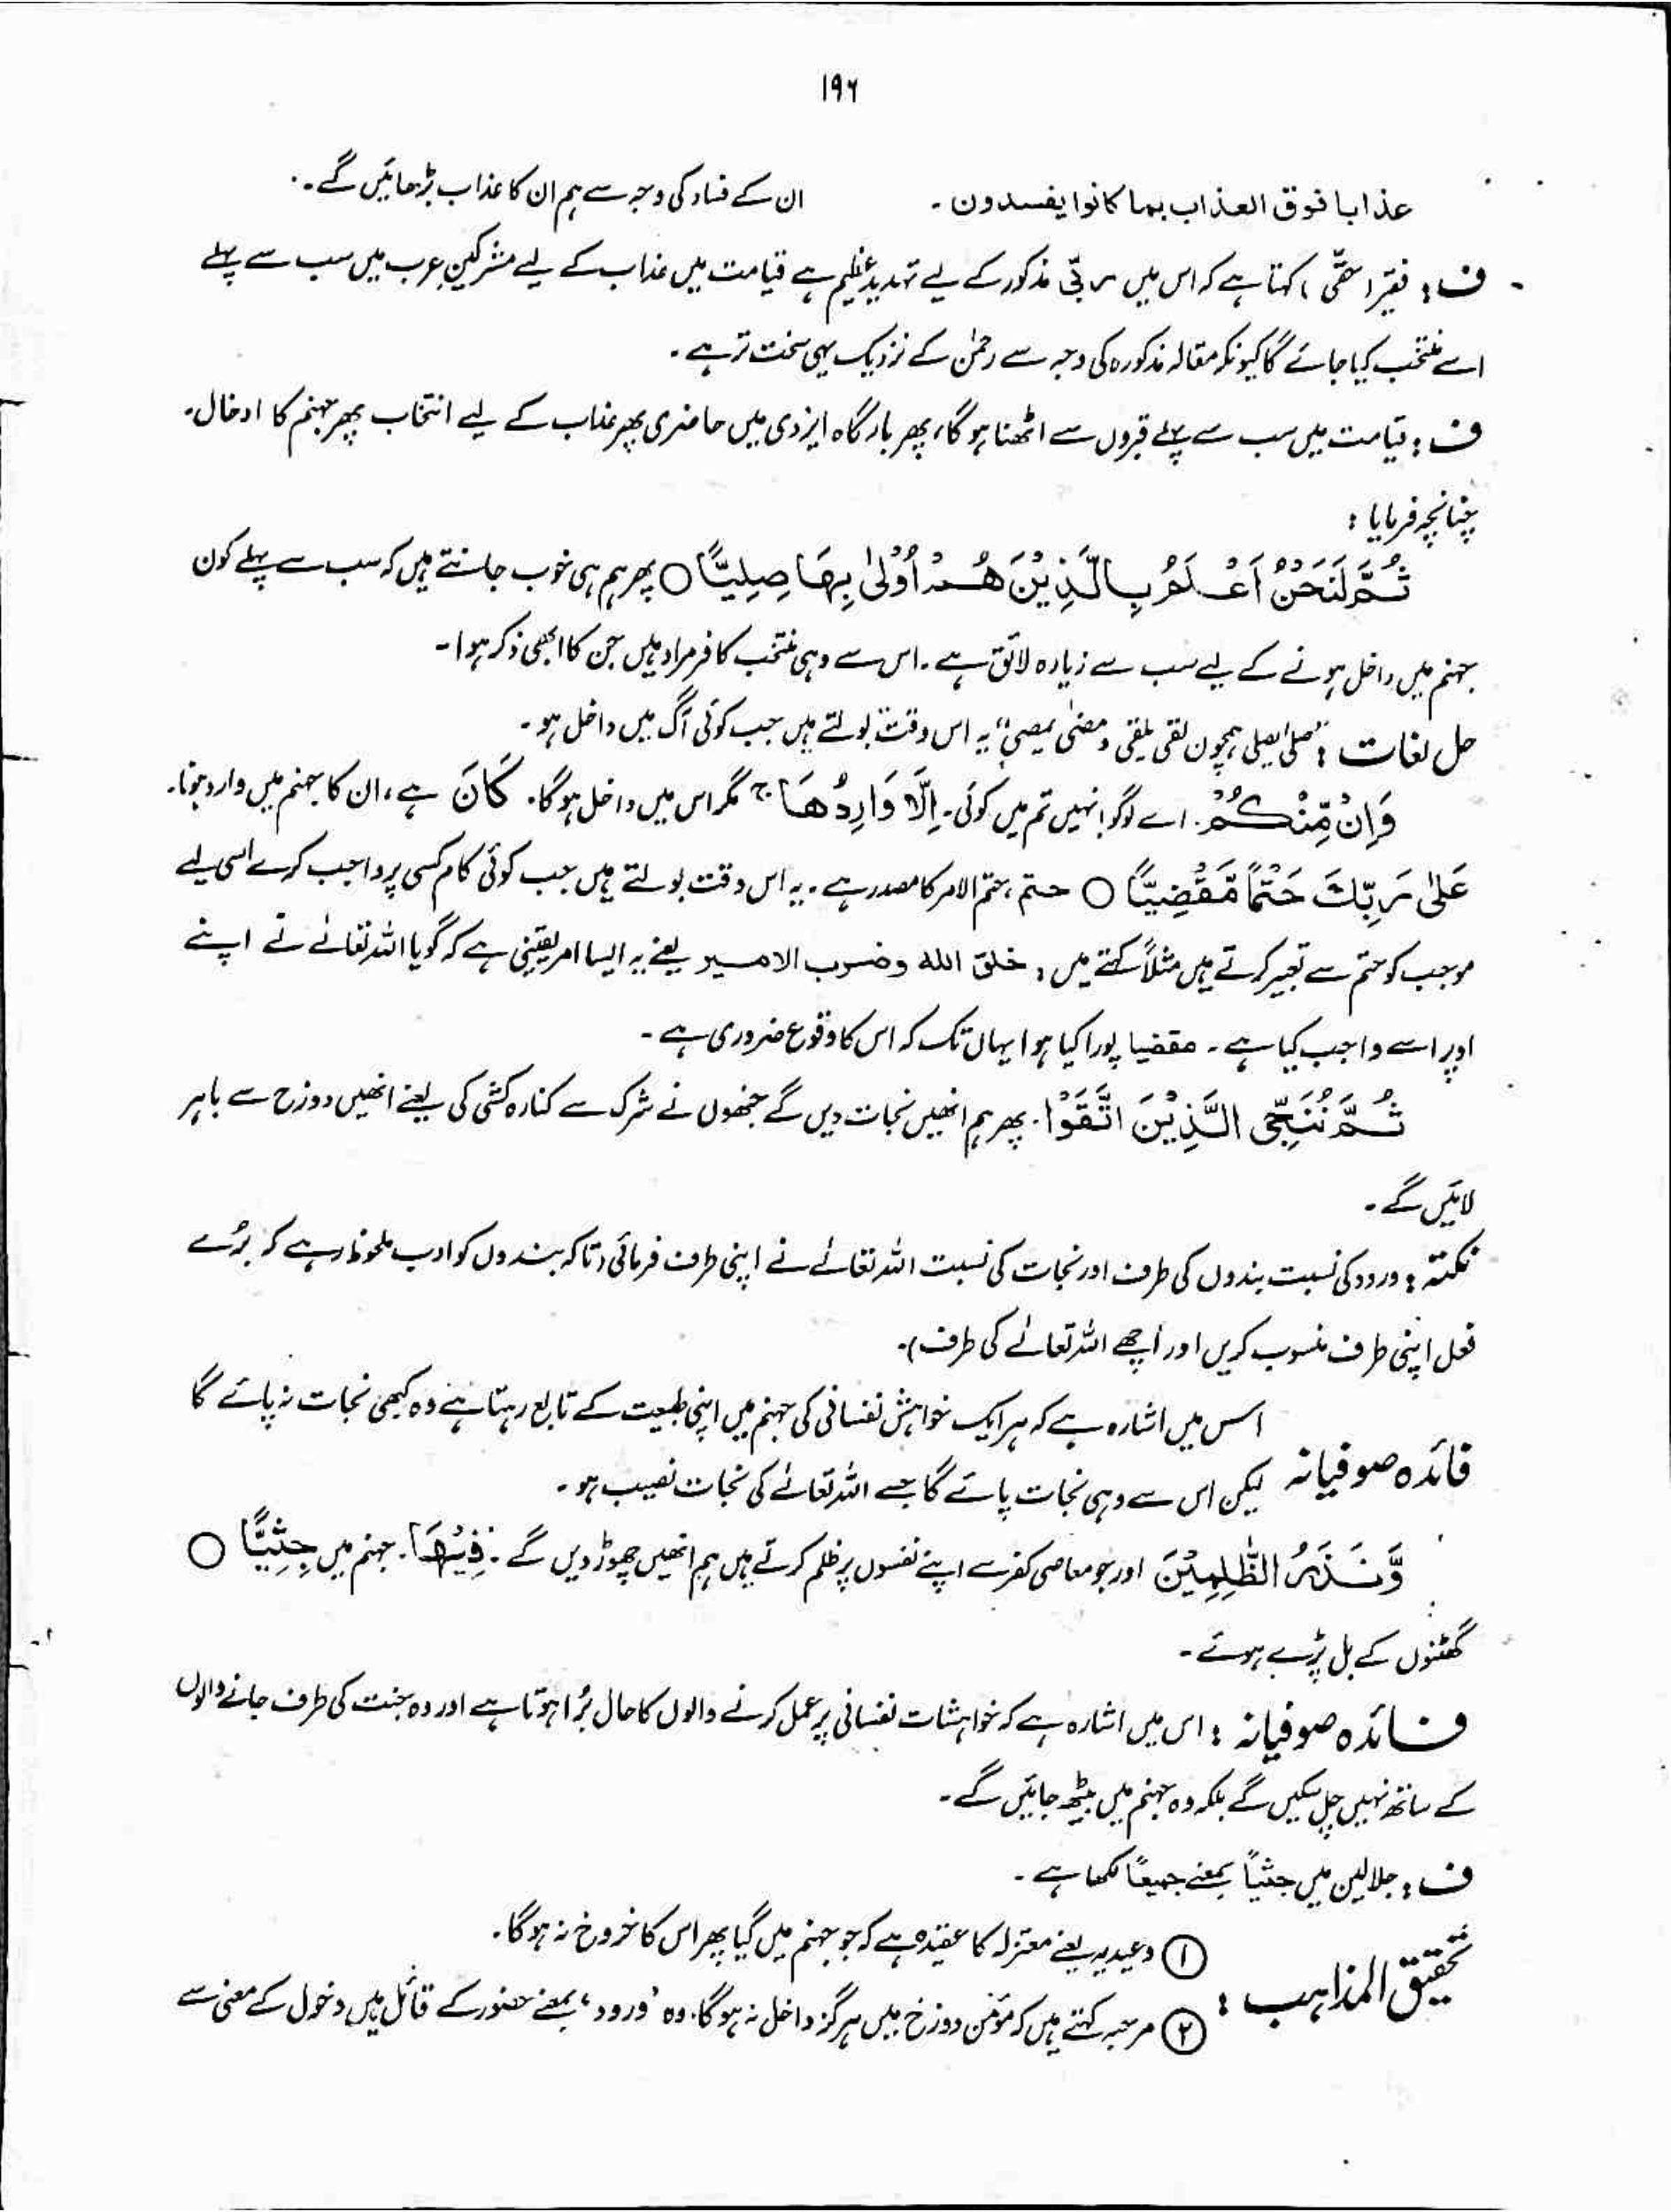 ۱۹۶
عذابا فوق العذاب بما کانوا یفسدون ۔ ان کے فساد کی وجہ سے ہم ان کا عذاب بڑھائیں گے ۔
ف : فقیر (حقی) کہتا ہے کہ اس میں مربی مذکور کے لیے تہدید عظیم ہے قیامت میں عذاب کے لیے مشرکینِ عرب میں سب سے پہلے
اسے منتخب کیا جائے گا کیونکہ مقالہ مذکورہ کی وجہ سے رحمٰن کے نزدیک یہی سخت تر ہے ۔
ف : قیامت میں سب سے پہلے قبروں سے اٹھنا ہو گا، پھر بارگاہ ایزدی میں حاضری پھر عذاب کے لیے انتخاب پھر جہنم کا ادخال۔
چنانچہ فرمایا :
ثُمَّ لَنَحْنُ اَعْلَمُ بِالَّذِیْنَ هُمْ اَوْلٰی بِهَا صِلِیًّا ○ پھر ہم ہی خوب جانتے ہیں کہ سب سے پہلے کون
جہنم میں داخل ہونے کے لیے سب سے زیادہ لائق ہے ۔ اس سے وہی منتخب کافر مراد ہیں جن کا ابھی ذکر ہوا ۔
حل لغات : "صلی یصلی ہمچون لقی یلقی و مضیٰ یمضی" یہ اس وقت بولتے ہیں جب کوئی آگ میں داخل ہو ۔
وَاِنْ مِّنْکُمْ ۔ اے لوگو! نہیں تم میں کوئی ۔ اِلَّا وَارِدُهَا ج مگر اس میں داخل ہو گا۔ کَانَ ہے ، ان کا جہنم میں وارد ہونا۔
عَلٰی رَبِّكَ حَتْمًا مَّقْضِیًّا ○ حتم ، حتم الامر کا مصدر ہے ۔ یہ اس وقت بولتے ہیں جب کوئی کام کسی پر واجب کرے اسی لیے
موجب کو حتم سے تعبیر کرتے ہیں مثلاً کہتے ہیں : خلق الله وضرب الامیر یعنے یہ ایسا امر یقینی ہے کہ گویا اللہ تعالےٰ نے اپنے
اوپر اسے واجب کیا ہے ۔ مقضیا پورا کیا ہوا یہاں تک کہ اس کا وقوع ضروری ہے ۔
ثُمَّ نُنَجِّی الَّذِیْنَ اتَّقَوْا ۔ پھر ہم انھیں نجات دیں گے جنھوں نے شرک سے کنارہ کشی کی یعنے انھیں دوزخ سے باہر
لائیں گے ۔
نکتہ : ورود کی نسبت بندوں کی طرف اور نجات کی نسبت اللہ تعالےٰ نے اپنی طرف فرمائی (تاکہ بندوں کو ادب ملحوظ رہے کہ بُرے
فعل اپنی طرف منسوب کریں اور اچھے اللہ تعالےٰ کی طرف)۔
اس میں اشارہ ہے کہ ہر ایک خواہش نفسانی کی جہنم میں اپنی طبیعت کے تابع رہتا ہے وہ کبھی نجات نہ پائے گا
فائدہ صوفیانہ لیکن اس سے وہی نجات پائے گا جسے اللہ تعالےٰ کی نجات نصیب ہو ۔
وَّنَذَرُ الظّٰلِمِیْنَ اور جو معاصی کفر سے اپنے نفسوں پر ظلم کرتے ہیں ہم انھیں چھوڑ دیں گے ۔ فِیْهَا ۔ جہنم میں جِثِیًّا ○
گھٹنوں کے بل پڑے ہوئے ۔
فائدہ صوفیانہ : اس میں اشارہ ہے کہ خواہشات نفسانی پر عمل کرنے والوں کا حال بُرا ہوتا ہے اور وہ جنت کی طرف جانے والوں
کے ساتھ نہیں چل سکیں گے بلکہ وہ جہنم میں بیٹھ جائیں گے ۔
ف : جلالین میں جثیاً بمعنے جمیعًا لکھا ہے ۔
تحقیق المذاہب : ① وعیدیہ یعنے معتزلہ کا عقیدہ ہے کہ جو جہنم میں گیا پھر اس کا خروج نہ ہو گا۔
② مرجیہ کہتے ہیں کہ مؤمن دوزخ میں ہرگز داخل نہ ہو گا۔ وہ 'ورود' بمعنے حضور کے قائل ہیں دخول کے معنی سے